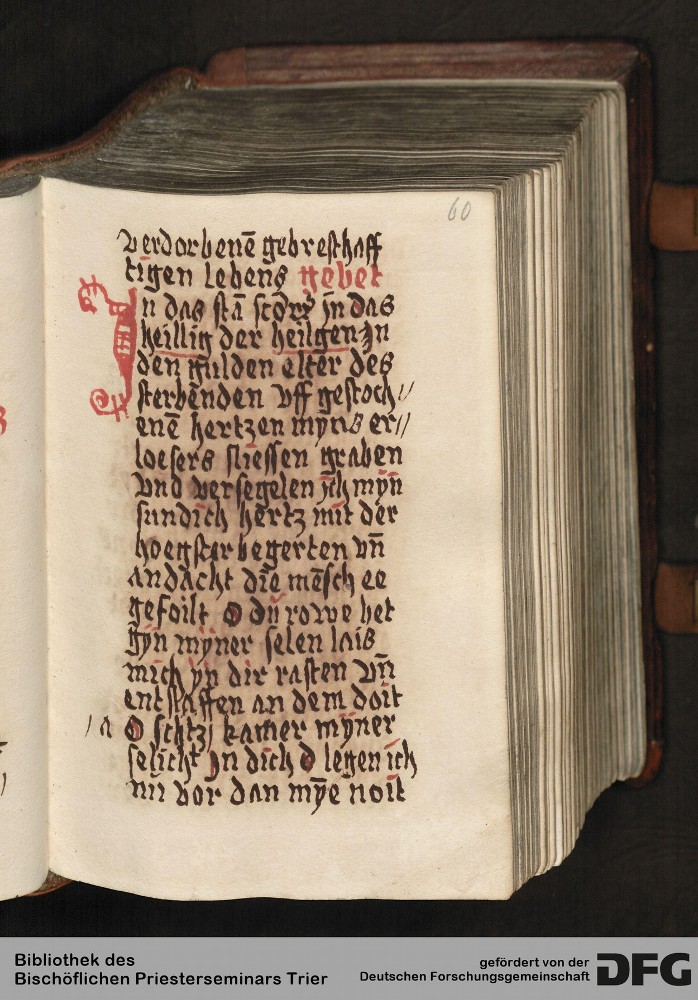 60
verdorbenē gebresthaff
tigen lebens gebet
In das stā scōrꝝ jn das
heillig der heilgen jn
den gulden elter des
sterbenden vff gestoch//
enē hertzen myns er//
loesers sliessen graben
vnd versegelen jch myn̄
sundich hertz mit der
hoegster begerten vn̄
andacht die mēsch ee
gefoilt O du rowe bet
gyn myner selen lais
mich yn dir rasten vn̄
entslaffen an dem doit
O schtzj kamer myner
selicht jn dich d legen ich
nū vor dan myē noit
Bibliothek des
Bischöflichen Priesterseminars Trier
gefördert von der
Deutschen Forschungsgemeinschaft
DFG